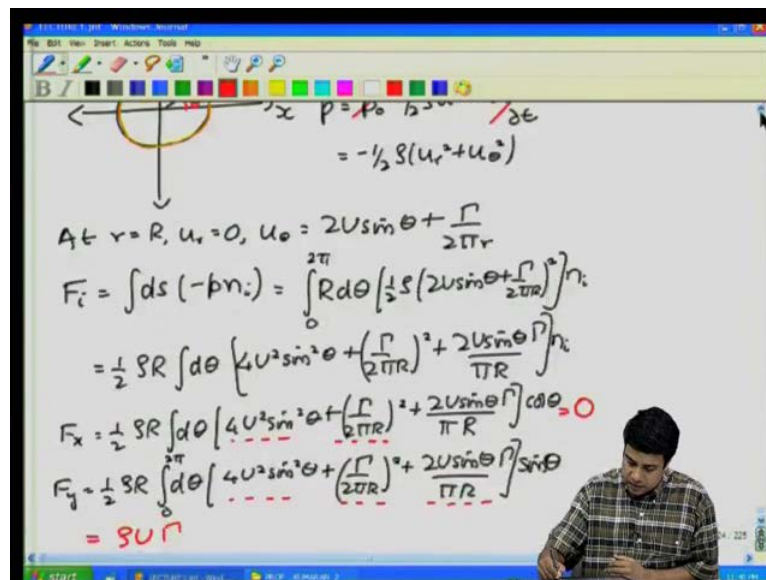 LECTURE1.jnt - Windows Journal
File Edit View Insert Actions Tools Help
B I
x p = p₀ ½ρu ∂t
= -½ρ(uᵣ²+u_θ²)
At r=R, uᵣ=0, u_θ = 2U sinθ + Γ/2πr
Fᵢ = ∫ds(-pnᵢ) = ∫₀^2π Rdθ[½ρ(2U sinθ+Γ/2πR)²]nᵢ
= ½ρR∫dθ[4U² sin²θ + (Γ/2πR)² + 2U sinθ Γ/πR]nᵢ
Fₓ = ½ρR∫dθ[4U² sin²θ + (Γ/2πR)² + 2U sinθ Γ/πR]cosθ = 0
F_y = ½ρR∫₀^2π dθ[4U² sin²θ + (Γ/2πR)² + 2U sinθ Γ/πR]sinθ
= ρUΓ
/ 225
start